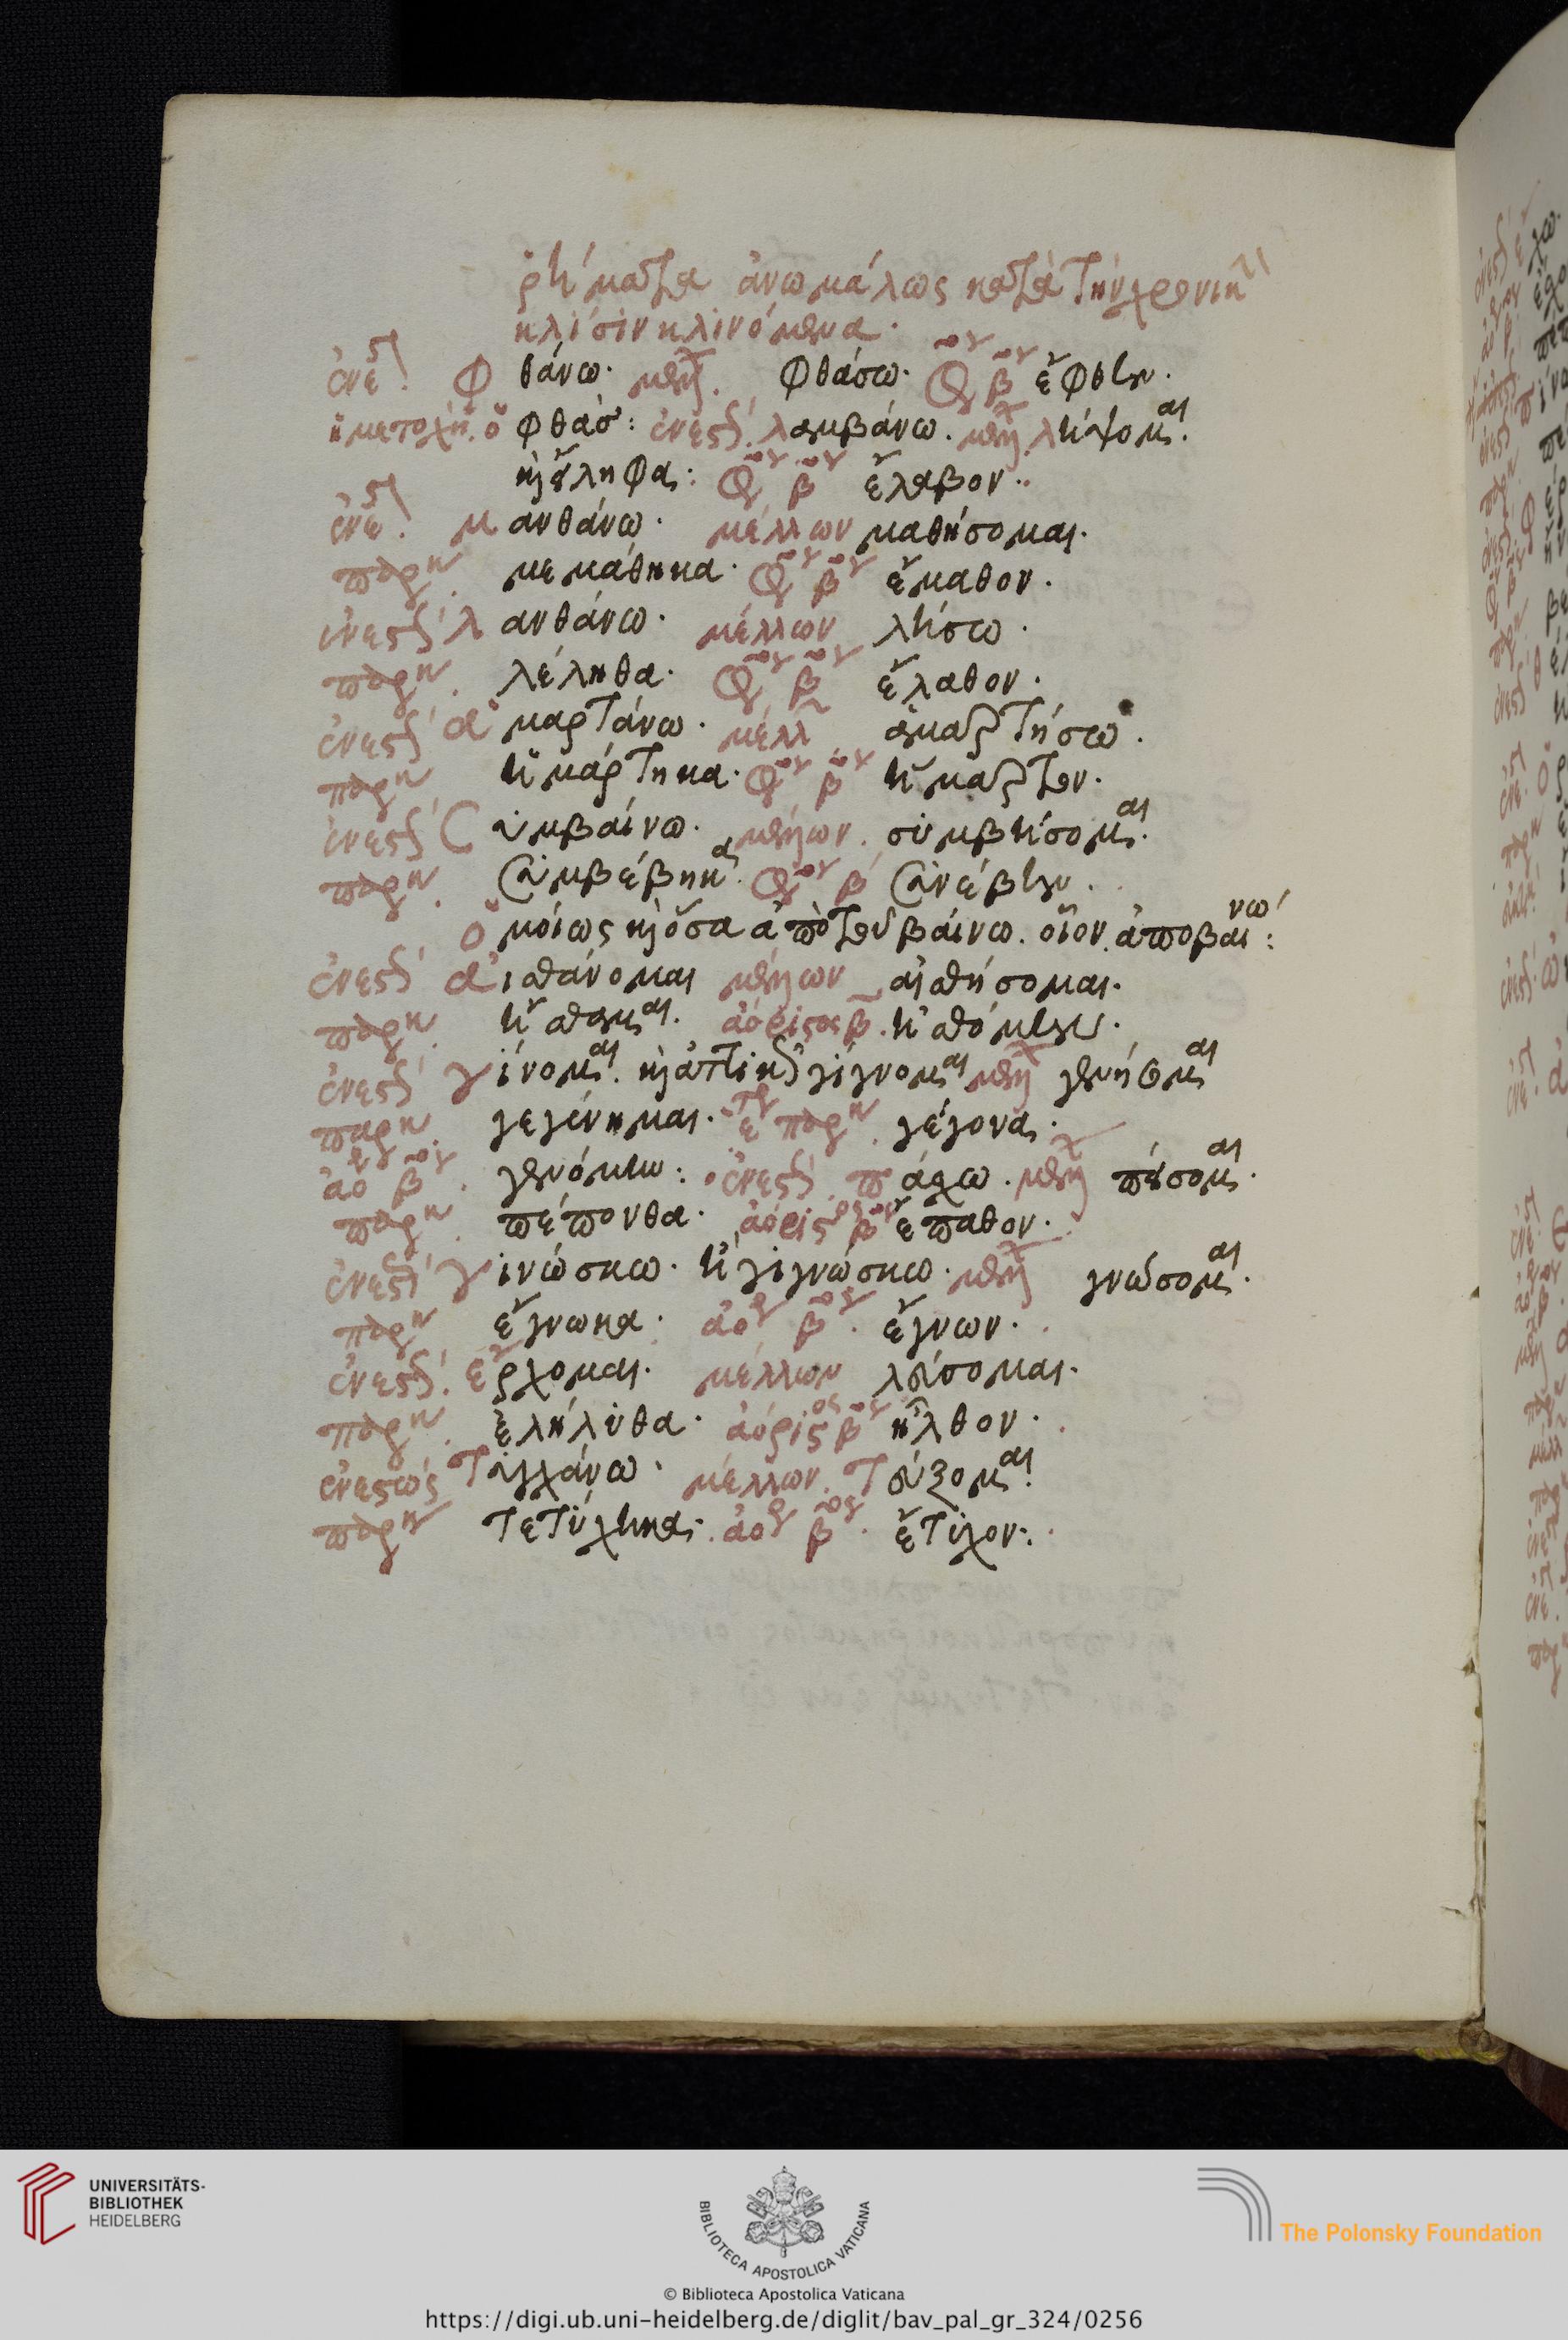 ῥήματα ἀνωμάλως κατὰ τὴν χρονικὴ
κλίσιν κλινόμενα.
ἐνεστ φθάνω. μελλ. φθάσω. β ἔφθην.
ἡ μετοχὴ. ὁ φθάσ: ἐνεστ. λαμβάνω. μελλ. λήψομαι.
εἴληφα: β ἔλαβον.
ἐνεστ μανθάνω. μέλλων μαθήσομαι.
παρκ. μεμάθηκα. β ἔμαθον.
ἐνεστ λανθάνω. μέλλων λήσω.
παρκ. λέληθα. β ἔλαθον.
ἐνεστ ἁμαρτάνω. μέλλ ἁμαρτήσω.
παρκ ἡμάρτηκα. β ἥμαρτον.
ἐνεστ συμβαίνω. μέλλων. συμβήσομαι.
παρκ. συμβέβηκα. β συνέβην.
ὁμοίως κὶ ὅσα ἀπὸ τοῦ βαίνω. οἷον ἀποβαινω:
ἐνεστ αἰσθάνομαι μέλλων αἰσθήσομαι.
παρκ. ἤσθημαι. ἀόριστος β. ἠσθόμην.
ἐνεστ γίνομαι. κὶ ἀττικ γίγνομαι μελλ γενήσομαι
παρκ. γεγένημαι. παρκ. γέγονα.
ἀο β. γενόμην: ἐνεστ πάσχω. μελλ πείσομαι.
παρκ. πέπονθα. ἀόριστος β ἔπαθον.
ἐνεστ γινώσκω. ἢ γιγνώσκω. μελλ γνώσομαι.
παρκ ἔγνωκα. ἀο β. ἔγνων.
ἐνεστ. ἔρχομαι. μέλλων λεύσομαι.
παρκ. ἐλήλυθα. ἀόριστος β ἦλθον.
ἐνεστώς τυγχάνω. μέλλων. τεύξομαι.
παρκ τετύχηκα. ἀο β. ἔτυχον:
UNIVERSITÄTS-
BIBLIOTHEK
HEIDELBERG
BIBLIOTECA APOSTOLICA VATICANA
The Polonsky Foundation
© Biblioteca Apostolica Vaticana
https://digi.ub.uni-heidelberg.de/diglit/bav_pal_gr_324/0256